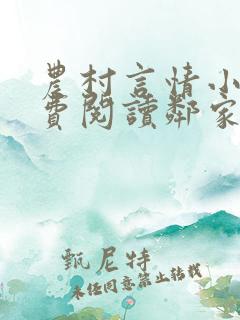 農村言情小
費閱讀鄰家
甄尼特
未经同意禁止转载